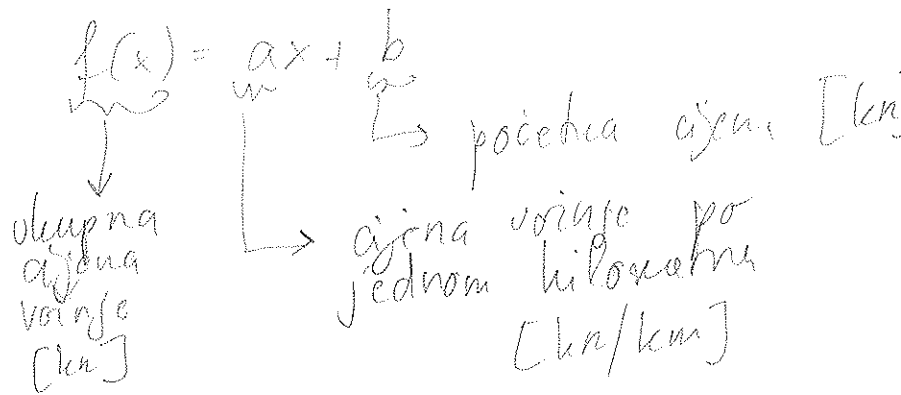 f(x) = ax + b
početna cijena [kn]
ukupna
cijena
vožnje
[kn]
cijena vožnje po
jednom kilometru
[kn/km]